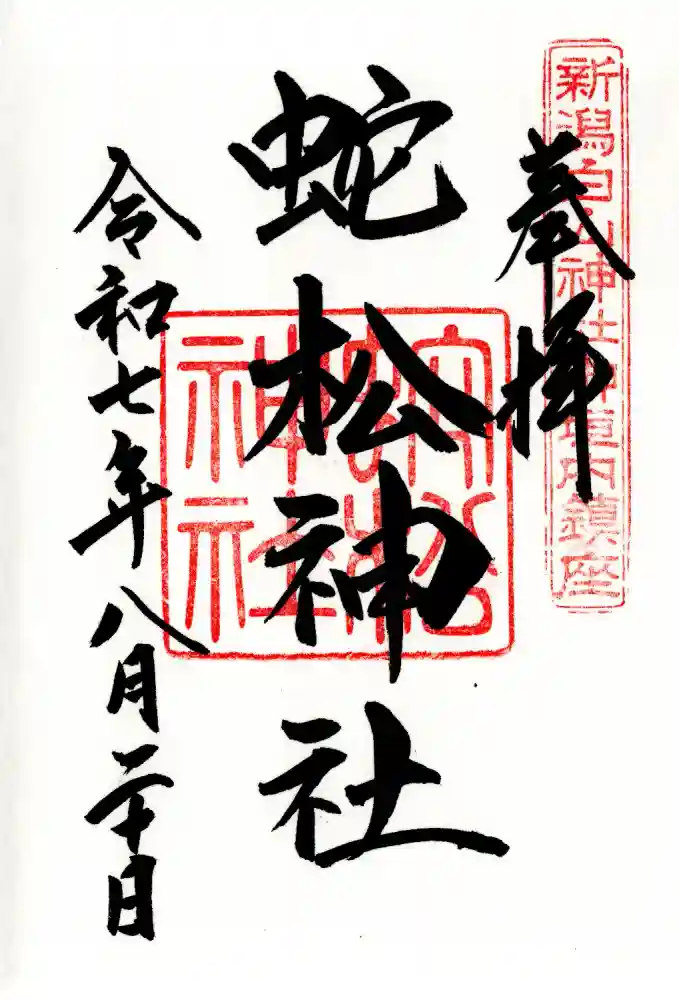 新潟白山神社神境内鎮座
奉拝
蛇松神社
令和七年八月二十日